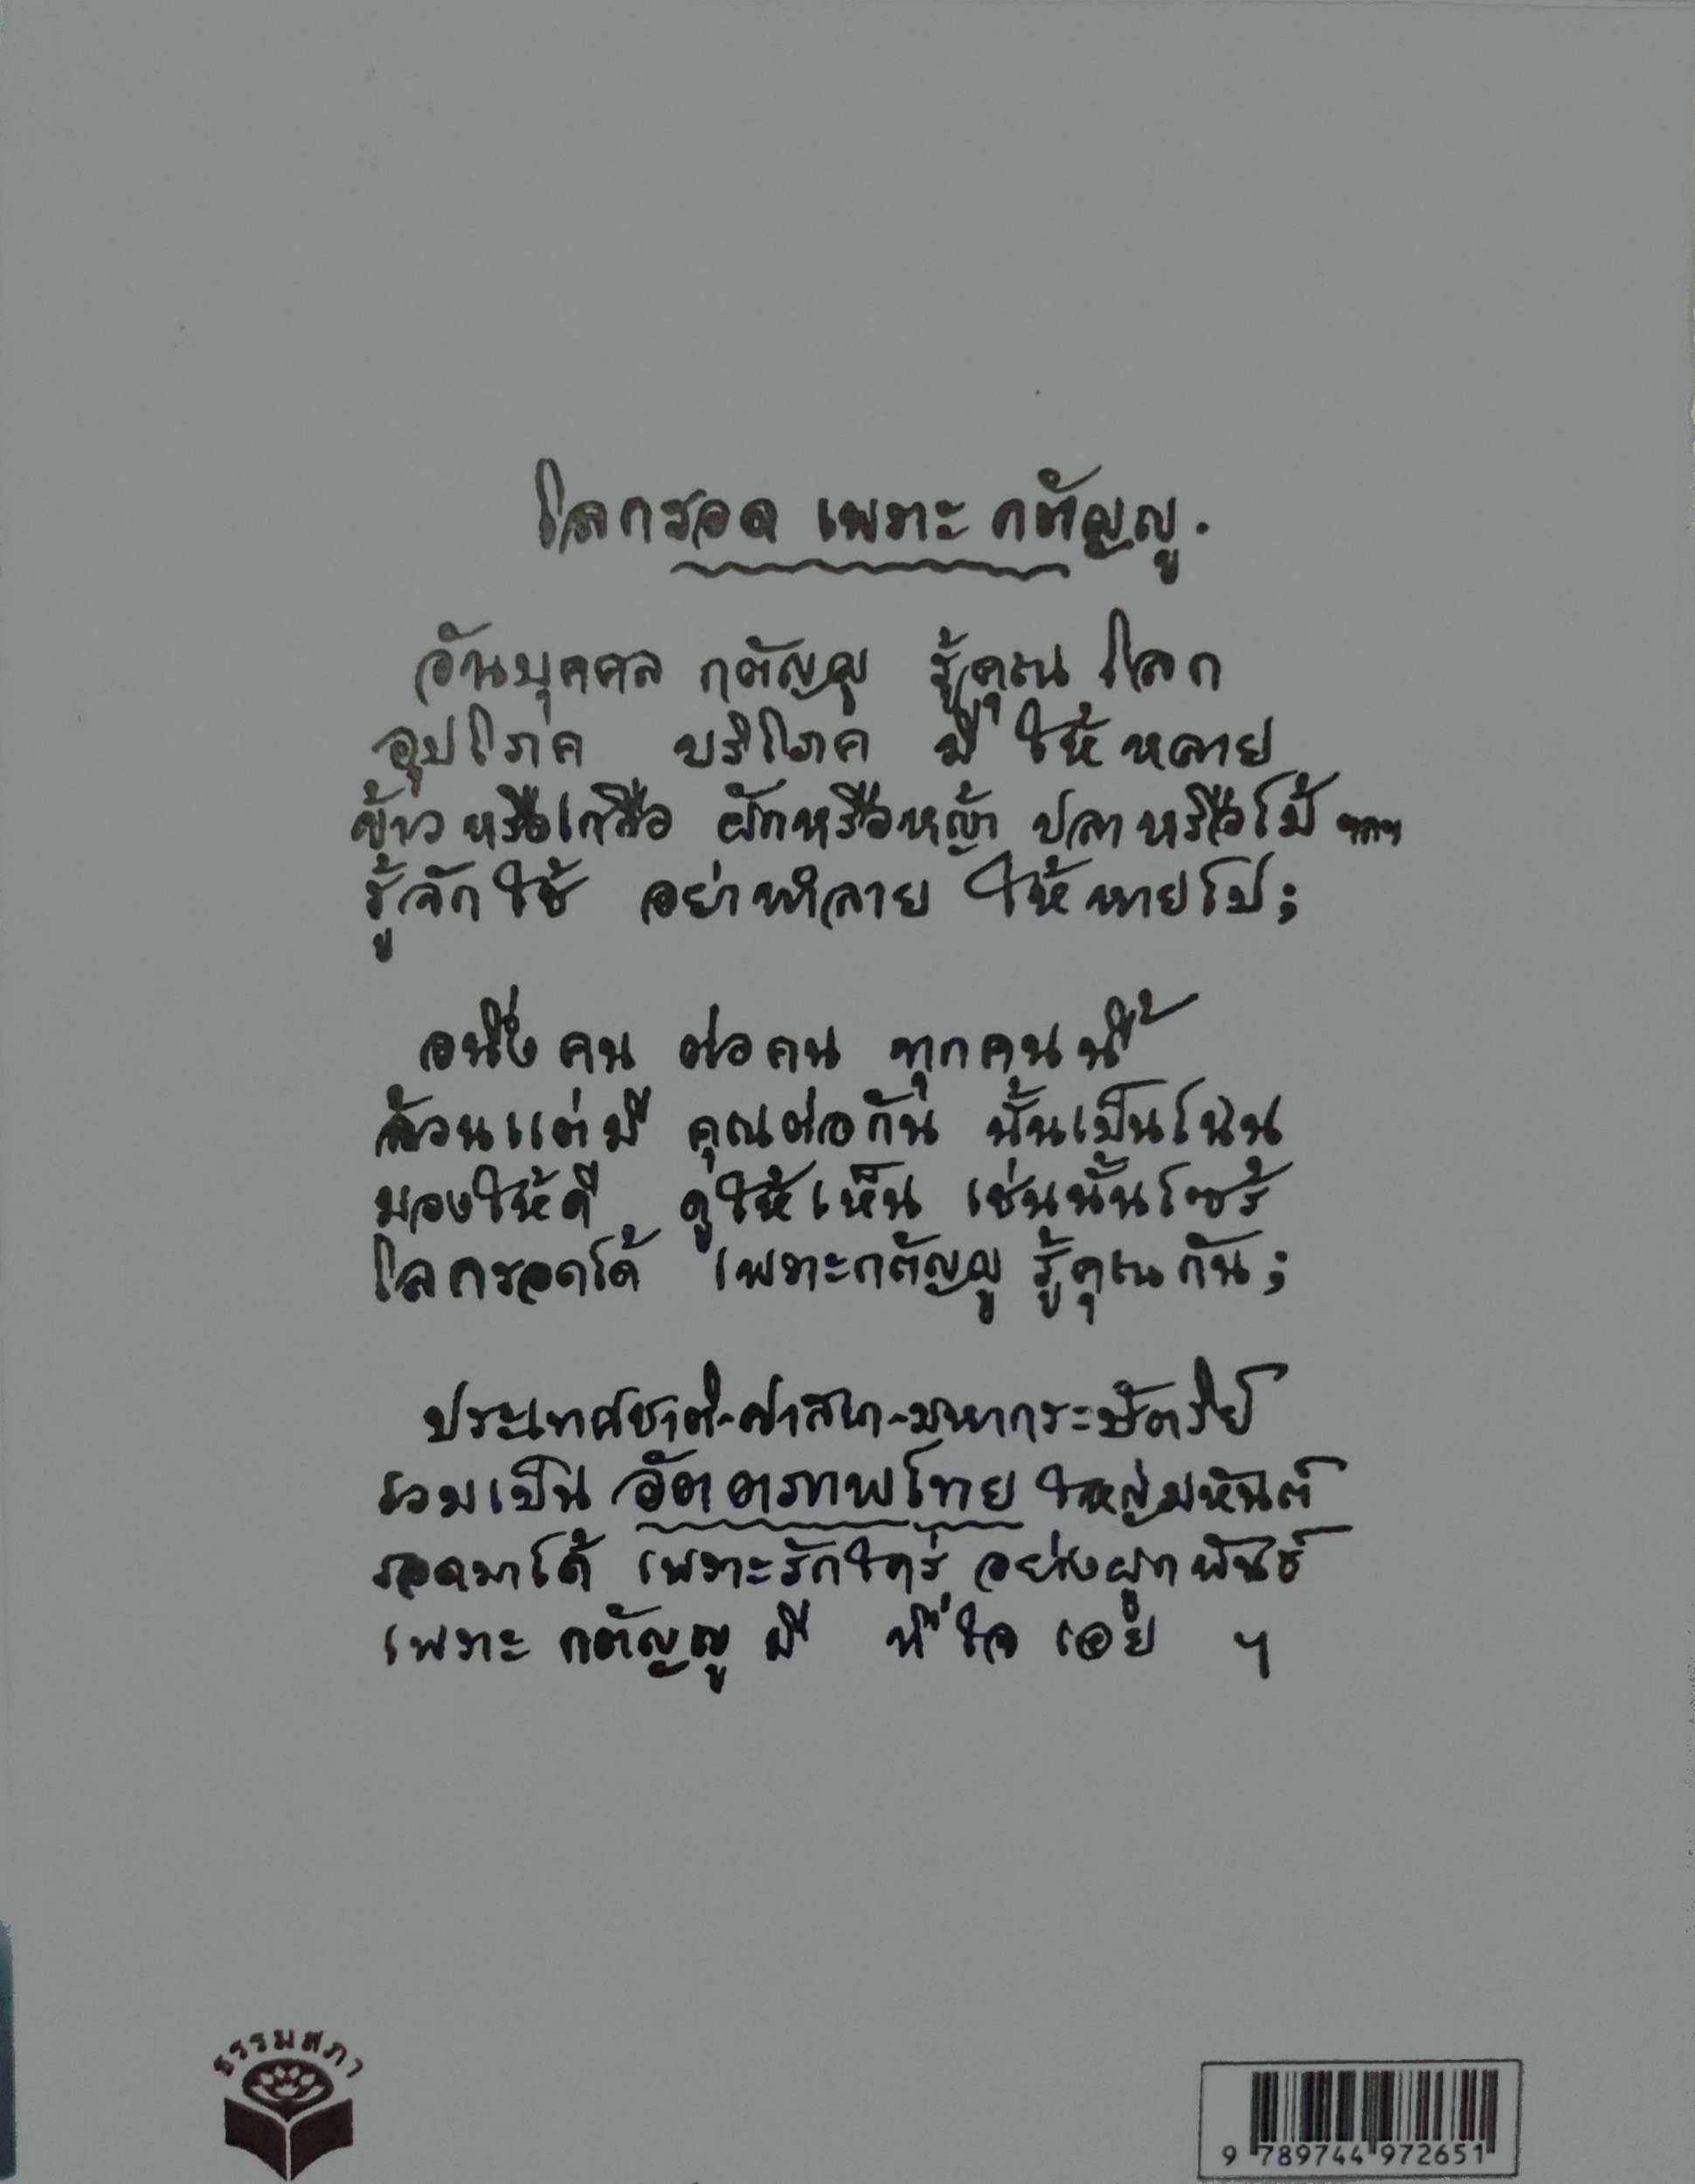 โลกรอด เพราะ กตัญญู.
อันบุคคล กตัญญู รู้คุณ โลก
อุปโภค บริโภค มี ให้ หลาย
ข้าวหรือเกลือ ผักหรือหญ้า ปลาหรือไม้ ฯลฯ
รู้จักใช้ อย่าทำลาย ให้หายไป;
อนึ่ง คน ต่อคน ทุกคนนี้
ล้วนแต่มี คุณต่อกัน นั้นเป็นไฉน
มองให้ดี ดูให้เห็น เช่นนั้นไซร้
โลกรอดได้ เพราะกตัญญู รู้คุณกัน;
ประเทศชาติ-ศาสนา-มหากระษัตริย์
รวมเป็น อัตตภาพไทย ใหญ่มหันต์
รอดมาได้ เพราะรักใคร่ อย่างผูกพันธ์
เพราะ กตัญญู มี ที่ใจ เอย ฯ
ธรรมสภา
9 789744 972651